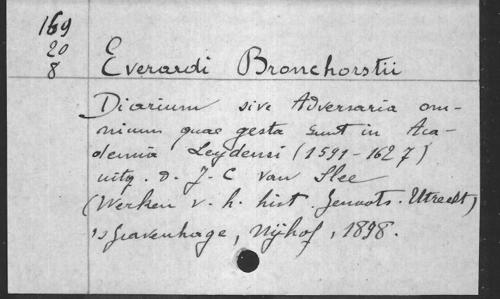 169
20
8
Everardi Bronchorstii
Diarium sive Adversaria om-
nium quae gesta sunt in Aca-
demia Leydensi (1591-1627)
uitg. d. J. C van Slee
(Werken v. h. hist. Genoots. Utrecht)
's Gravenhage, Nijhof, 1898.